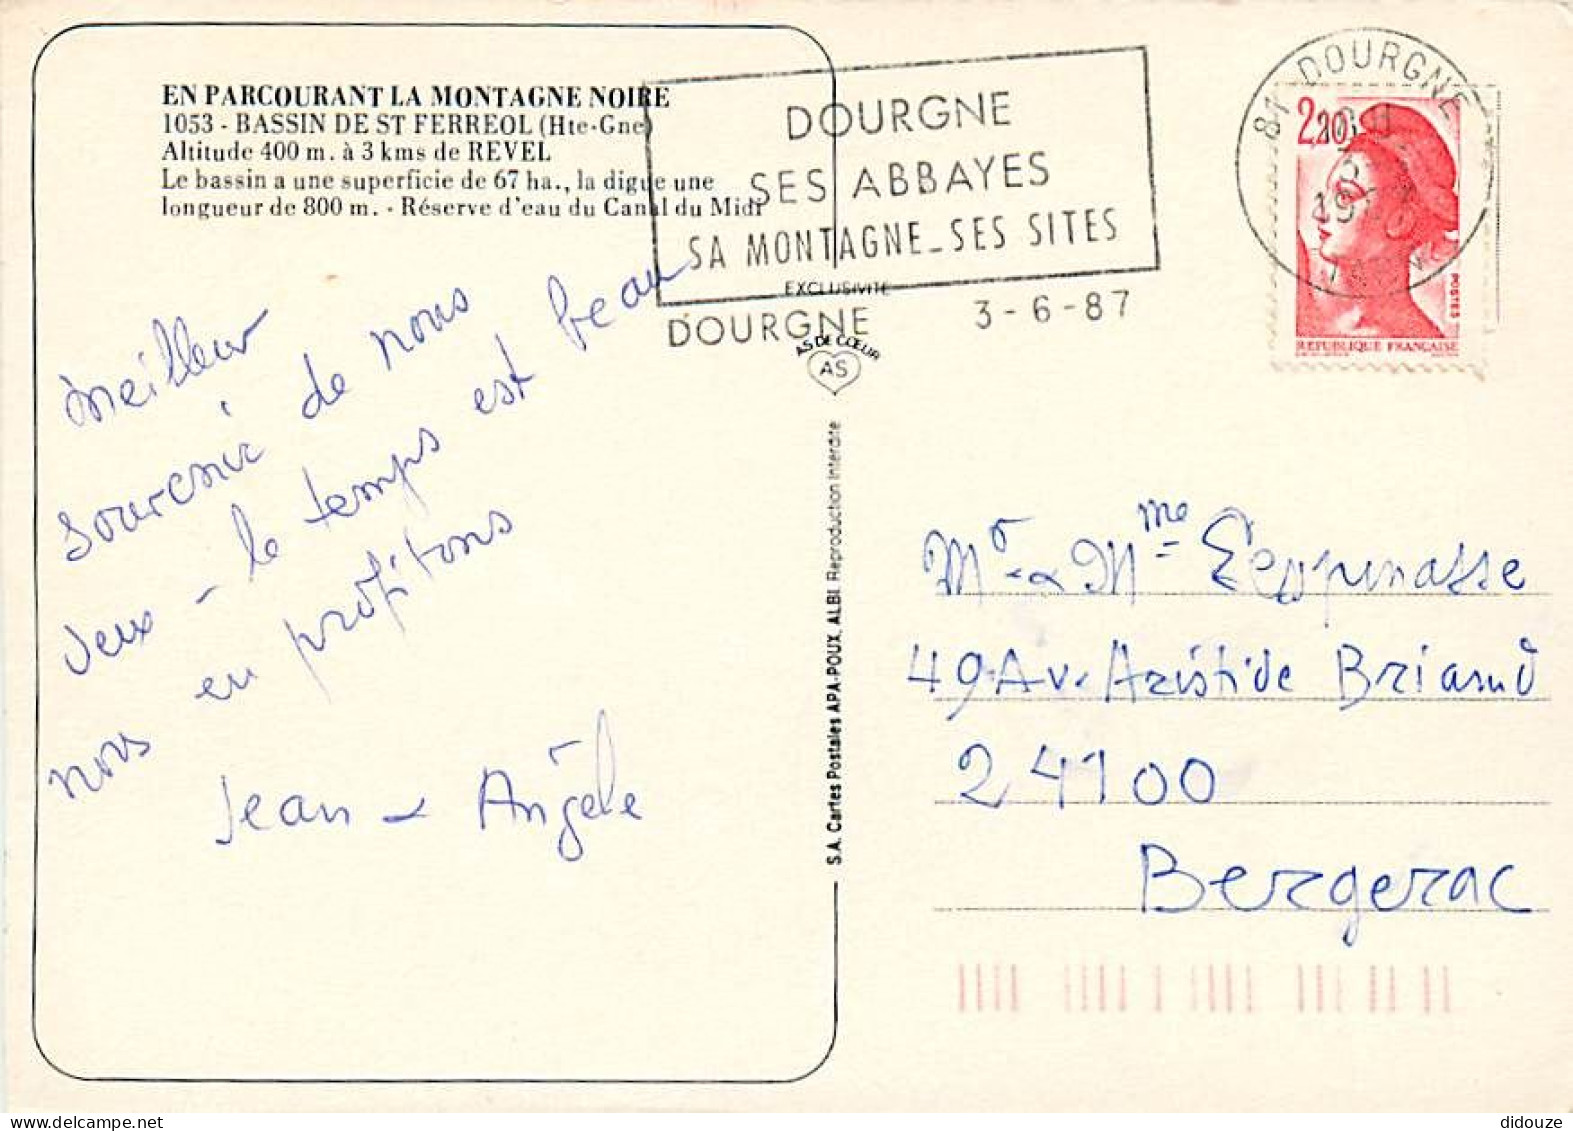 EN PARCOURANT LA MONTAGNE NOIRE
1053 - BASSIN DE ST FERREOL (Hte-Gne)
Altitude 400 m. à 3 kms de REVEL
Le bassin a une superficie de 67 ha., la digue une
longueur de 800 m. - Réserve d'eau du Canal du Midi
DOURGNE
SES ABBAYES
SA MONTAGNE_SES SITES
DOURGNE 3-6-87
81 DOURGNE
2,20
POSTES
REPUBLIQUE FRANÇAISE
EXCLUSIVITE
AS DE CŒUR
AS
S.A. Cartes Postales APA-POUX, ALBI. Reproduction Interdite
Meilleur
souvenir de nous
deux - le temps est beau
nous en profitons
Jean & Angèle
Mr & Mme Lespinasse
49 Av. Aristide Briand
24100
Bergerac
didouze